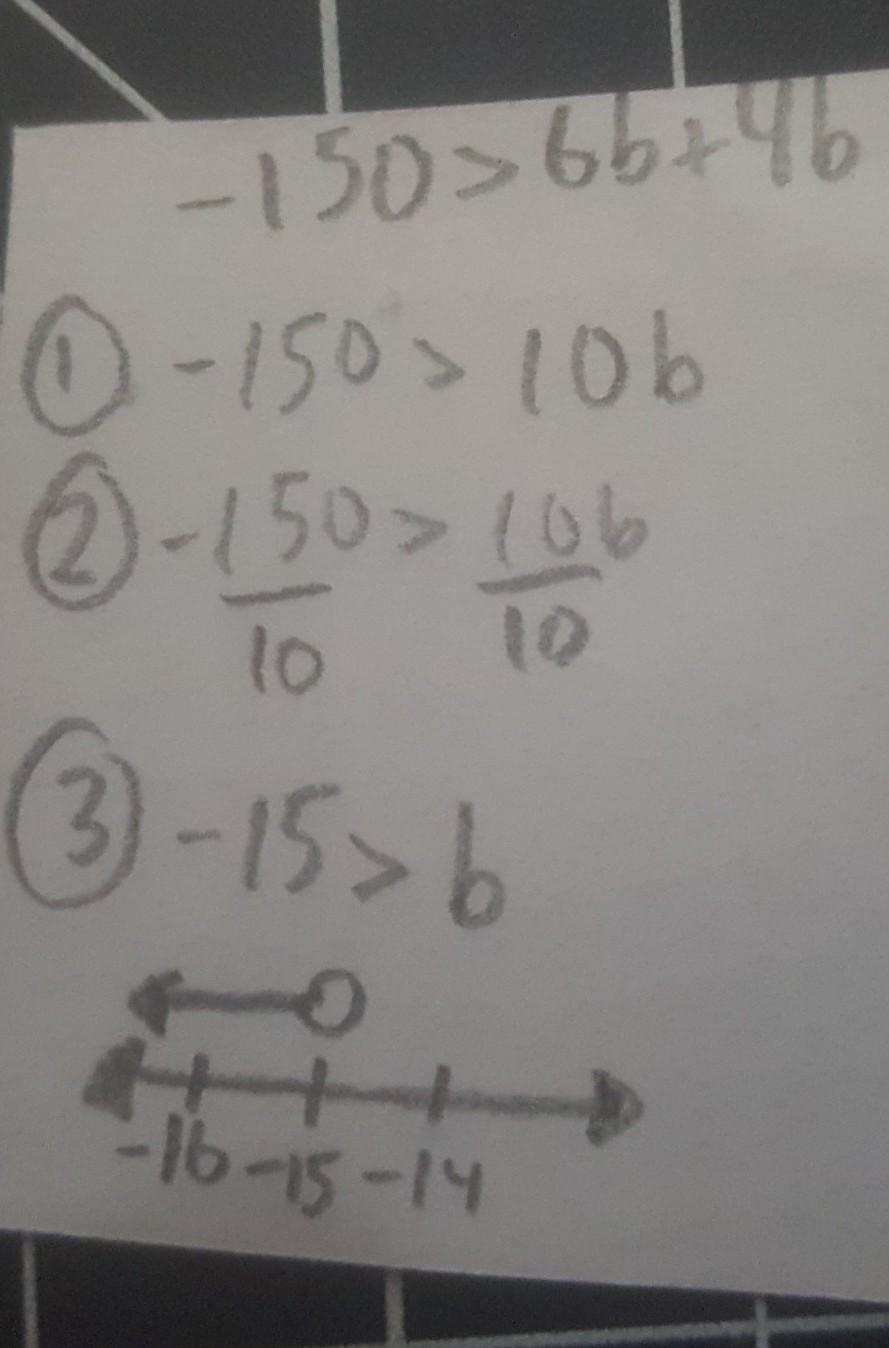 -150 > 6b + 4b
① -150 > 10b
② -150/10 > 10b/10
③ -15 > b
-16 -15 -14